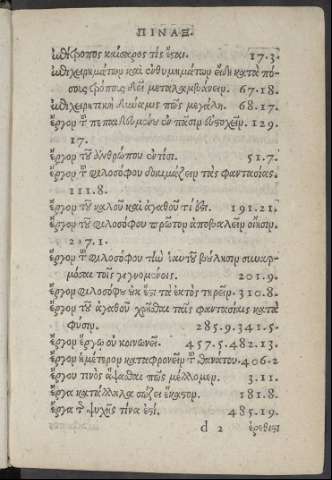 ΠΙΝΑΞ.
ἐπίτροπος καίσαρος τίς ἔσαι. 17.3.
ἐπιχειρημάτων καὶ ἐνθυμημάτων εἴδη κατὰ πό-
σους τρόπους δεῖ μεταλαμβάνειν. 67.18.
ἐπιχειρητικὴ δύναμις πῶς μεγάλη. 68.17.
ἔργον τοῦ πεπαιδευμένου ἐν πᾶσιν εὐσοχεῖν. 129.
17.
ἔργον τοῦ ἀνθρώπου ὅ,τι ἐστί. 51.7.
ἔργον τοῦ φιλοσόφου δοκιμάζειν τὰς φαντασίας.
111.8.
ἔργον τοῦ καλοῦ καὶ ἀγαθοῦ τί ἐστι. 191.21.
ἔργον τοῦ φιλοσόφου πρῶτον ἀποβαλεῖν οἴησιν.
207.1.
ἔργον τοῦ φιλοσόφου τὴν ἑαυτοῦ βούλησιν συναρ-
μόσαι τοῖς γιγνομένοις. 201.9.
ἔργον φιλοσόφου οὐκ ἔστι τὰ ἐκτὸς τηρεῖν. 310.8.
ἔργον τοῦ ἀγαθοῦ χρῆσθαι ταῖς φαντασίαις κατὰ
φύσιν. 285.9.341.5.
ἔργον ἔργῳ οὐ κοινωνεῖ. 457.5.482.13.
ἔργον ἡμέτερον καταφρονεῖν τοῦ θανάτου. 406.2
ἔργου τινὸς ἅψασθαι πῶς μέλλομεν. 3.11.
ἔργα κατάλληλα σώζει ἕκαστον. 181.8.
ἔργα τῆς ψυχῆς τίνα ἐστί. 485.19.
d 2 ἐρεθιστι